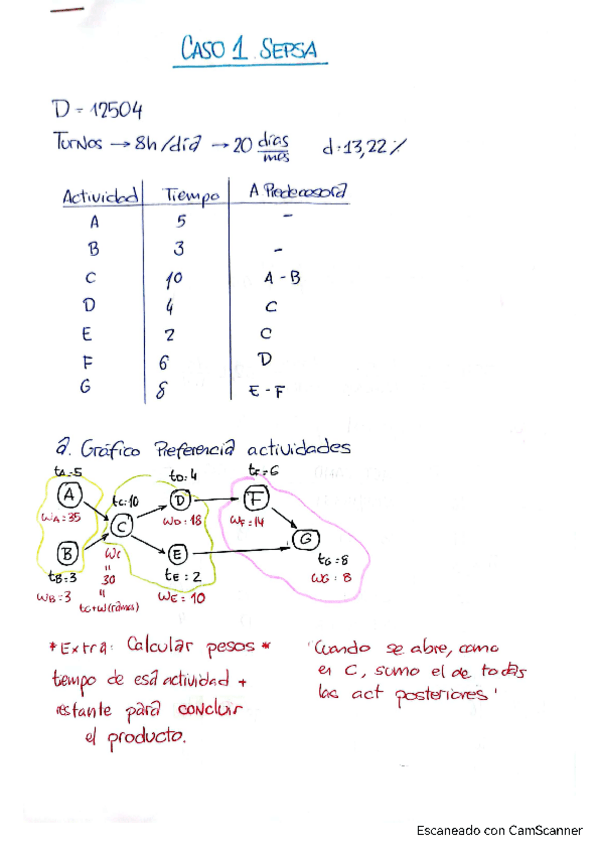 CASO 1 SEPSA
D = 12504
Turnos → 8h/día → 20 días/mes d=13,22%
Actividad Tiempo A Predecesora
A 5 -
B 3 -
C 10 A - B
D 4 C
E 2 C
F 6 D
G 8 E - F
a. Gráfico Preferencia actividades
tA=5 tD:4 tF=6
A tC:10 D F
WA:35 C WD:18 WF=14 G
B WC E tG=8
tB=3 30 tE:2 WG:8
WB=3 tC+W(ramas) WE:10
*Extra: Calcular pesos * 'Cuando se abre, como
tiempo de esa actividad + en C, sumo el de todas
restante para concluir las act posteriores'
el producto.
Escaneado con CamScanner